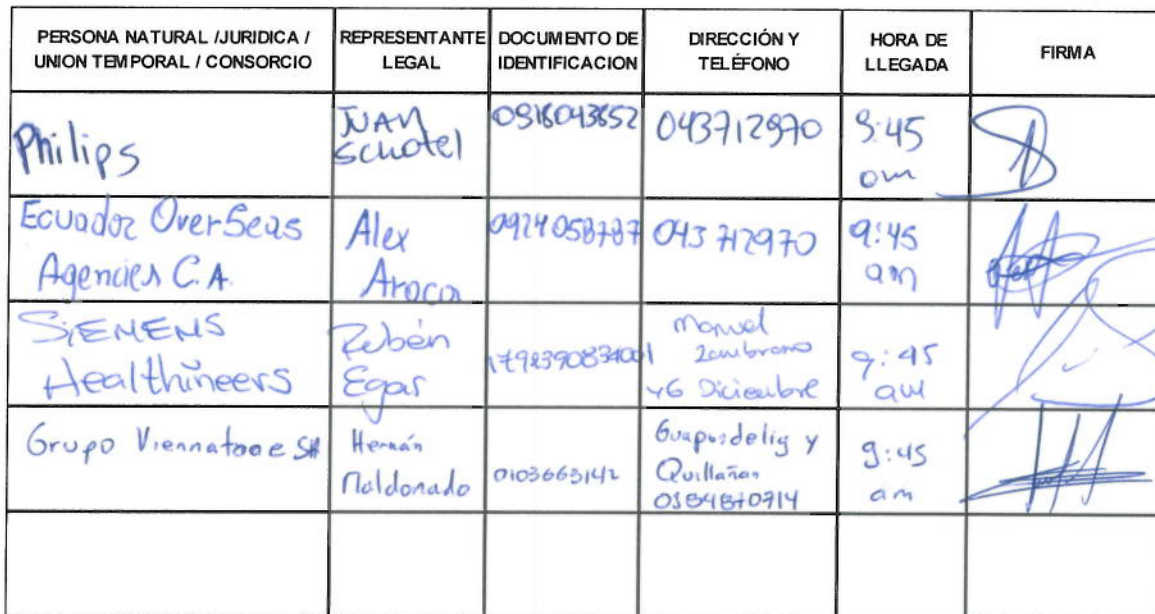 PERSONA NATURAL /JURIDICA /
UNION TEMPORAL / CONSORCIO
REPRESENTANTE
LEGAL
DOCUMENTO DE
IDENTIFICACION
DIRECCIÓN Y
TELÉFONO
HORA DE
LLEGADA
FIRMA
Philips
JUAN
Schotel
043712970
9:45
am
Ecuador OverSeas
Agencies C.A.
Alex
0924058787
043712970
9:45
am
SiEMENS
Healthineers
Rubén
Egas
Manuel
Zambrano
y 6 Diciembre
9:45
am
Grupo
Hernán
Maldonado
0103663142
y
9:45
am